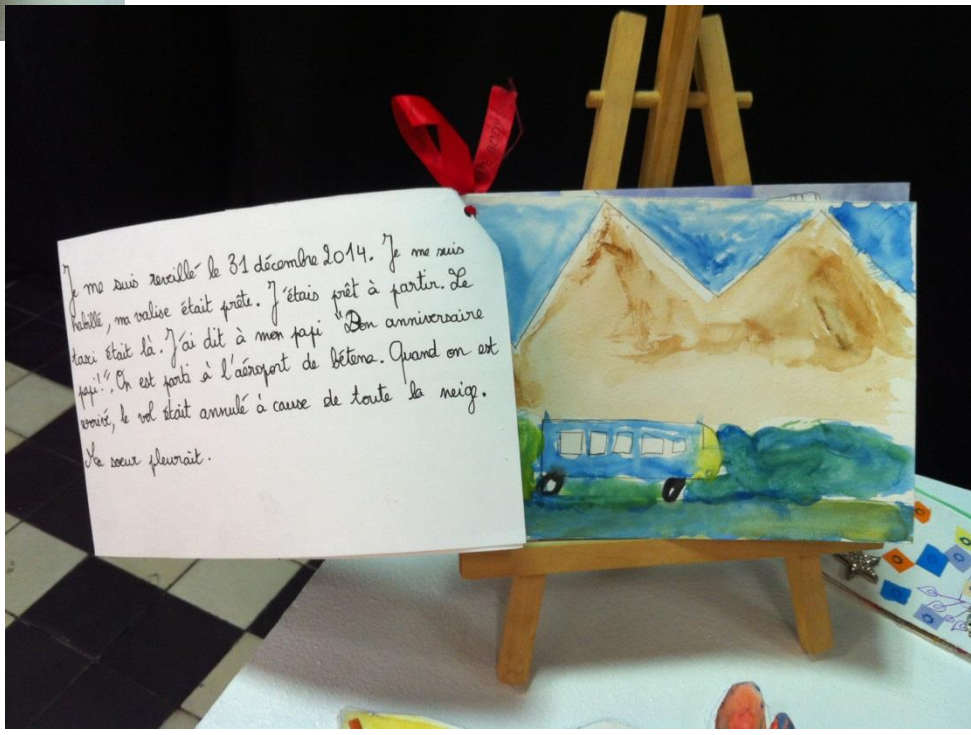 Je me suis reveillé le 31 décembre 2014. Je me suis
habillé, ma valise était prête. J'étais prêt à partir. Le
taxi était là. J'ai dit à mon papi "Bon anniversaire
papi!". On est parti à l'aéroport de bétena. Quand on est
arrivé, le vol était annulé à cause de toute la neige.
Ma soeur pleurait.